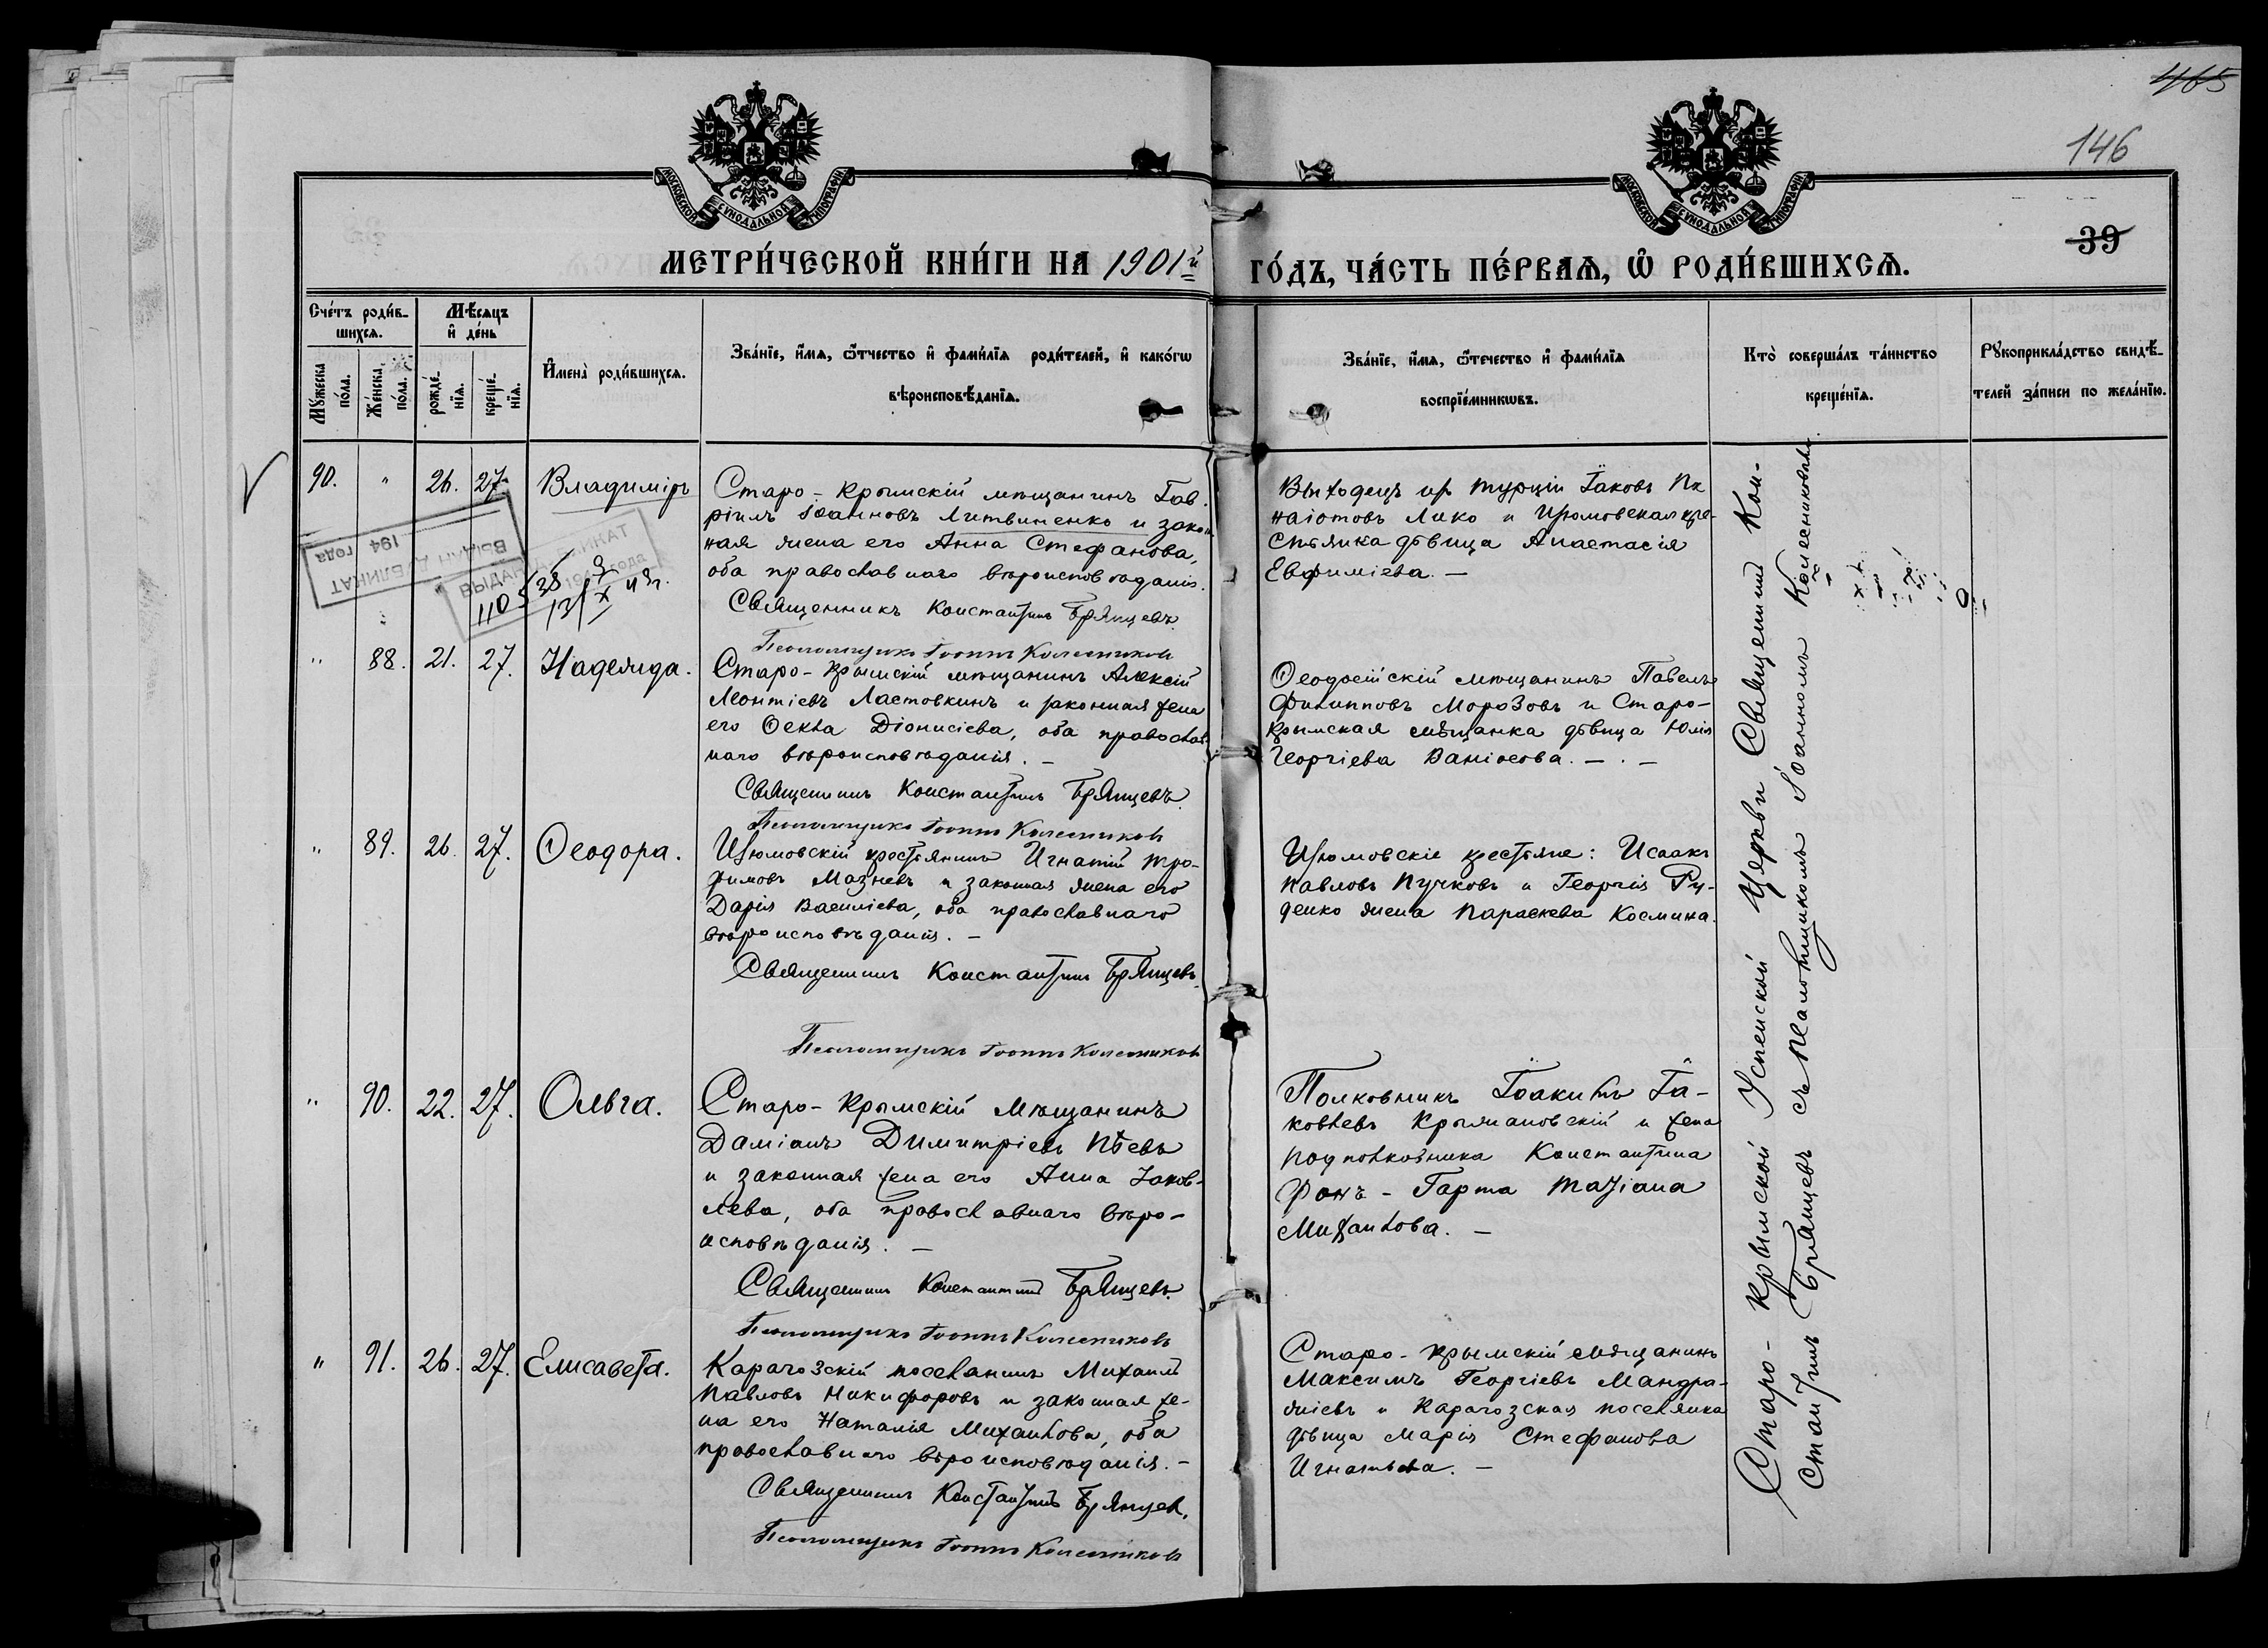 465
146
39
МОСКОВСКОЙ СѴНОДАЛЬНОЙ ТИПОГРАФІИ
МОСКОВСКОЙ СѴНОДАЛЬНОЙ ТИПОГРАФІИ
МЕТРИ́ЧЕСКОЙ КНИ́ГИ НА 1901й
ГО́ДЪ, ЧА́СТЬ ПЕ́РВАѦ, Ѡ РОДИ́ВШИХСѦ.
Сче́тъ роди́в-
шихсѧ.
Мꙋ́жеска
по́ла.
Же́нска.
по́ла.
Мѣ́сѧцъ
и҆ де́нь
рожде́-
нїѧ.
креще́-
нїѧ.
И҆мена̀ роди́вшихсѧ.
Зва́нїе, и҆́мѧ, ѻ҆́тчество и҆ фами́лїѧ роди́телей, и҆ како́гѡ
вѣроисповѣ́данїѧ.
Зва́нїе, и҆́мѧ, ѻ҆́течество и҆ фами́лїѧ
воспрїе́мникѡвъ.
Кто̀ соверша́лъ та́инство
креще́нїѧ.
Рꙋкоприкла́дство свидѣ́-
телей за́писи по жела́нїю.
90. " 26. 27. Владиміръ
Старо-Крымскій мѣщанинъ Гав-
ріилъ Іоанновъ Литвиненко и закон
ная жена его Анна Стефанова,
оба православнаго вѣроисповѣданія.
Священникъ Константинъ Брянцевъ.
Псаломщикъ Іоаннъ Колесниковъ
Выходецъ изъ Турціи Іаковъ Па
наіотовъ Лико и Изюмовская кре-
стьянка дѣвица Анастасія
Евфиміева. —
ВЫДАН ДУБЛИКАТ
194 года
ВЫДАН ДУБЛИКАТ
110538
" 88. 21. 27. Надежда.
Старо-Крымскій мѣщанинъ Алексій
Леонтіевъ Ластовкинъ и законная жена
его Ѳекла Діонисіева, оба православ
наго вѣроисповѣданія. —
Священникъ Константинъ Брянцевъ.
Псаломщикъ Іоаннъ Колесниковъ
Ѳеодосійскій мѣщанинъ Павелъ
Филипповъ Морозовъ и Старо-
Крымская мѣщанка дѣвица Юлія
Георгіева Ваніосова. — . —
" 89. 26. 27. Ѳеодора.
Изюмовскій крестьянинъ Игнатій Тро-
фимовъ Мазневъ и законная жена его
Дарія Василіева, оба православнаго
вѣроисповѣданія. —
Священникъ Константинъ Брянцевъ.
Псаломщикъ Іоаннъ Колесниковъ
Изюмовскіе крестьяне: Исаакъ
Павловъ Пучковъ и Георгія Ру-
денко жена Параскева Космина.
" 90. 22. 27. Ольга.
Старо-Крымскій мѣщанинъ
Даміанъ Димитріевъ Пѣевъ
и законная жена его Анна Іаков-
лева, оба православнаго вѣро-
исповѣданія. —
Священникъ Константинъ Брянцевъ.
Псаломщикъ Іоаннъ Колесниковъ
Полковникъ Іоакимъ Іа-
ковлевъ Крыжановскій и жена
подполковника Константина
Фонъ-Гарта Татіана
Михаилова. —
" 91. 26. 27. Елисавета.
Карагозскій поселянинъ Михаилъ
Павловъ Никифоровъ и законная же-
на его Наталія Михаилова, оба
православнаго вѣроисповѣданія. —
Священникъ Константинъ Брянцев.
Псаломщикъ Іоаннъ Колесниковъ
Старо-Крымскій мѣщанинъ
Максимъ Георгіевъ Мандра-
жіевъ и Карагозская поселянка
дѣвица Марія Стефанова
Игнатьева. —
Старо-Крымской Успенской Церкви Священникъ Кон-
стантинъ Брянцевъ съ псаломщикомъ Іоанномъ Колесниковымъ.